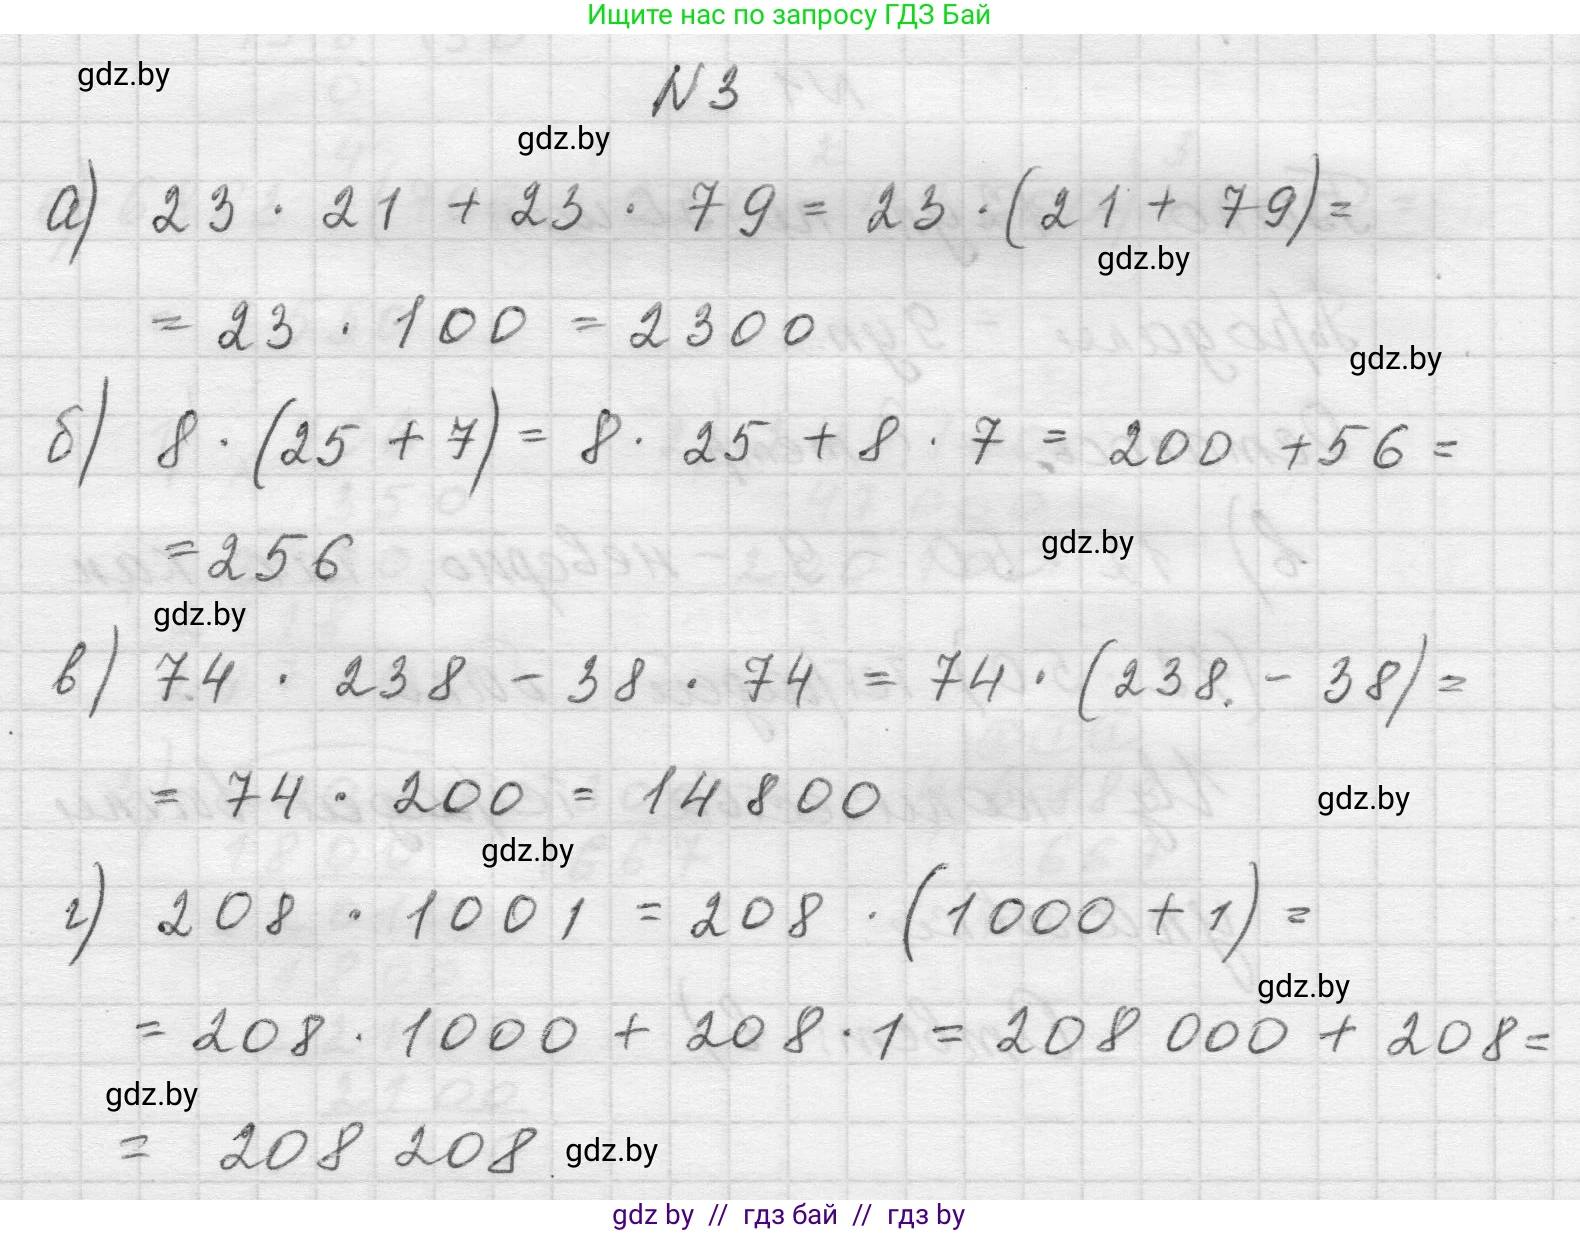 Ищите нас по запросу ГДЗ Бай
gdz.by
N 3
gdz.by
а) 23 · 21 + 23 · 79 = 23 · (21 + 79) =
gdz.by
= 23 · 100 = 2300
gdz.by
б) 8 · (25 + 7) = 8 · 25 + 8 · 7 = 200 + 56 =
= 256
gdz.by
gdz.by
в) 74 · 238 - 38 · 74 = 74 · (238 - 38) =
= 74 · 200 = 14800
gdz.by
gdz.by
г) 208 · 1001 = 208 · (1000 + 1) =
gdz.by
= 208 · 1000 + 208 · 1 = 208 000 + 208 =
gdz.by
= 208 208
gdz.by
gdz by // гдз бай // гдз by